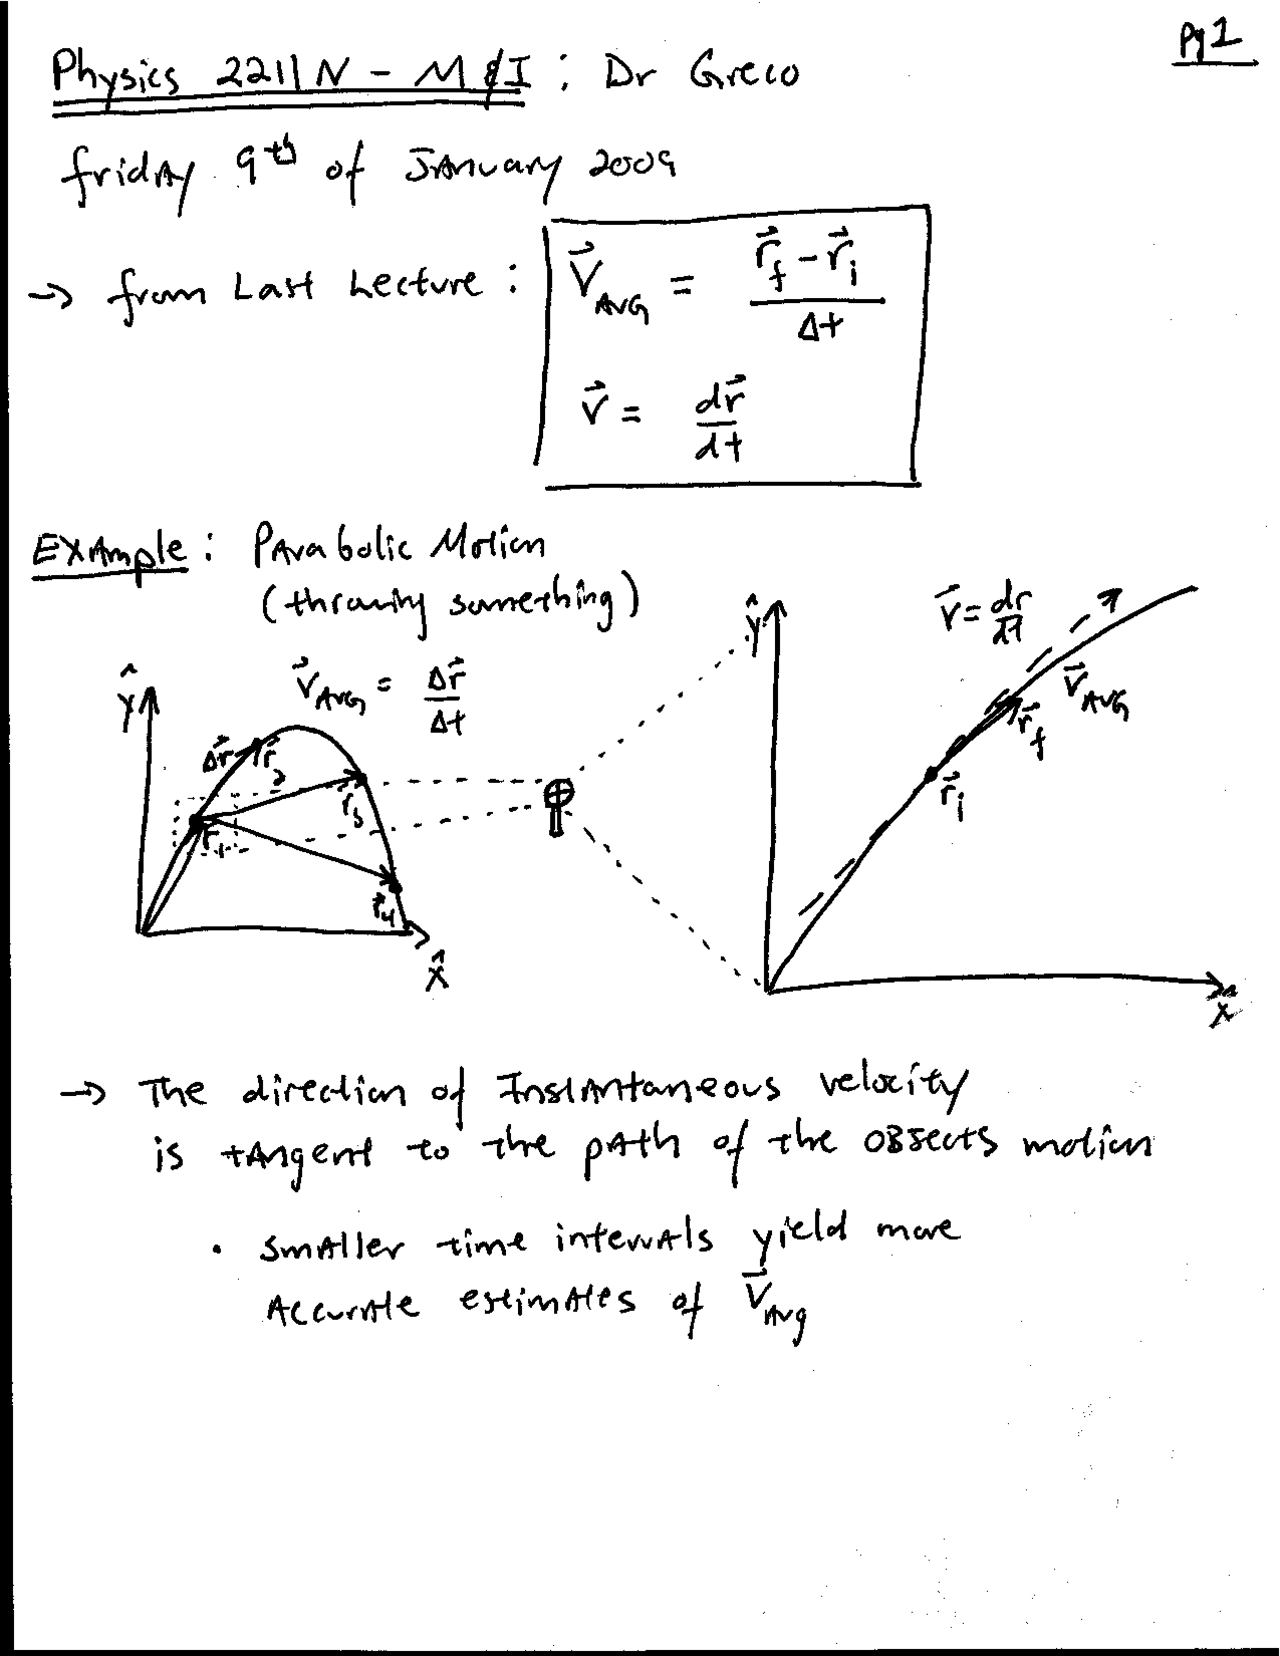 Pg 1
Physics 2211 N - M&I : Dr Greco
friday 9th of January 2009
→ from Last Lecture :
V⃗AVG = (r⃗f - r⃗i) / Δt
v⃗ = dr⃗/dt
Example : Parabolic Motion
(throwing something)
V⃗AVG = Δr⃗/Δt
ŷ
Δr⃗
r⃗2
r⃗3
r⃗1
r⃗4
x̂
ŷ
v⃗ = dr/dt
V⃗AVG
r⃗f
r⃗i
x̂
→ The direction of Instantaneous velocity
is tangent to the path of the objects motion
• Smaller time intervals yield more
Accurate estimates of V⃗Avg